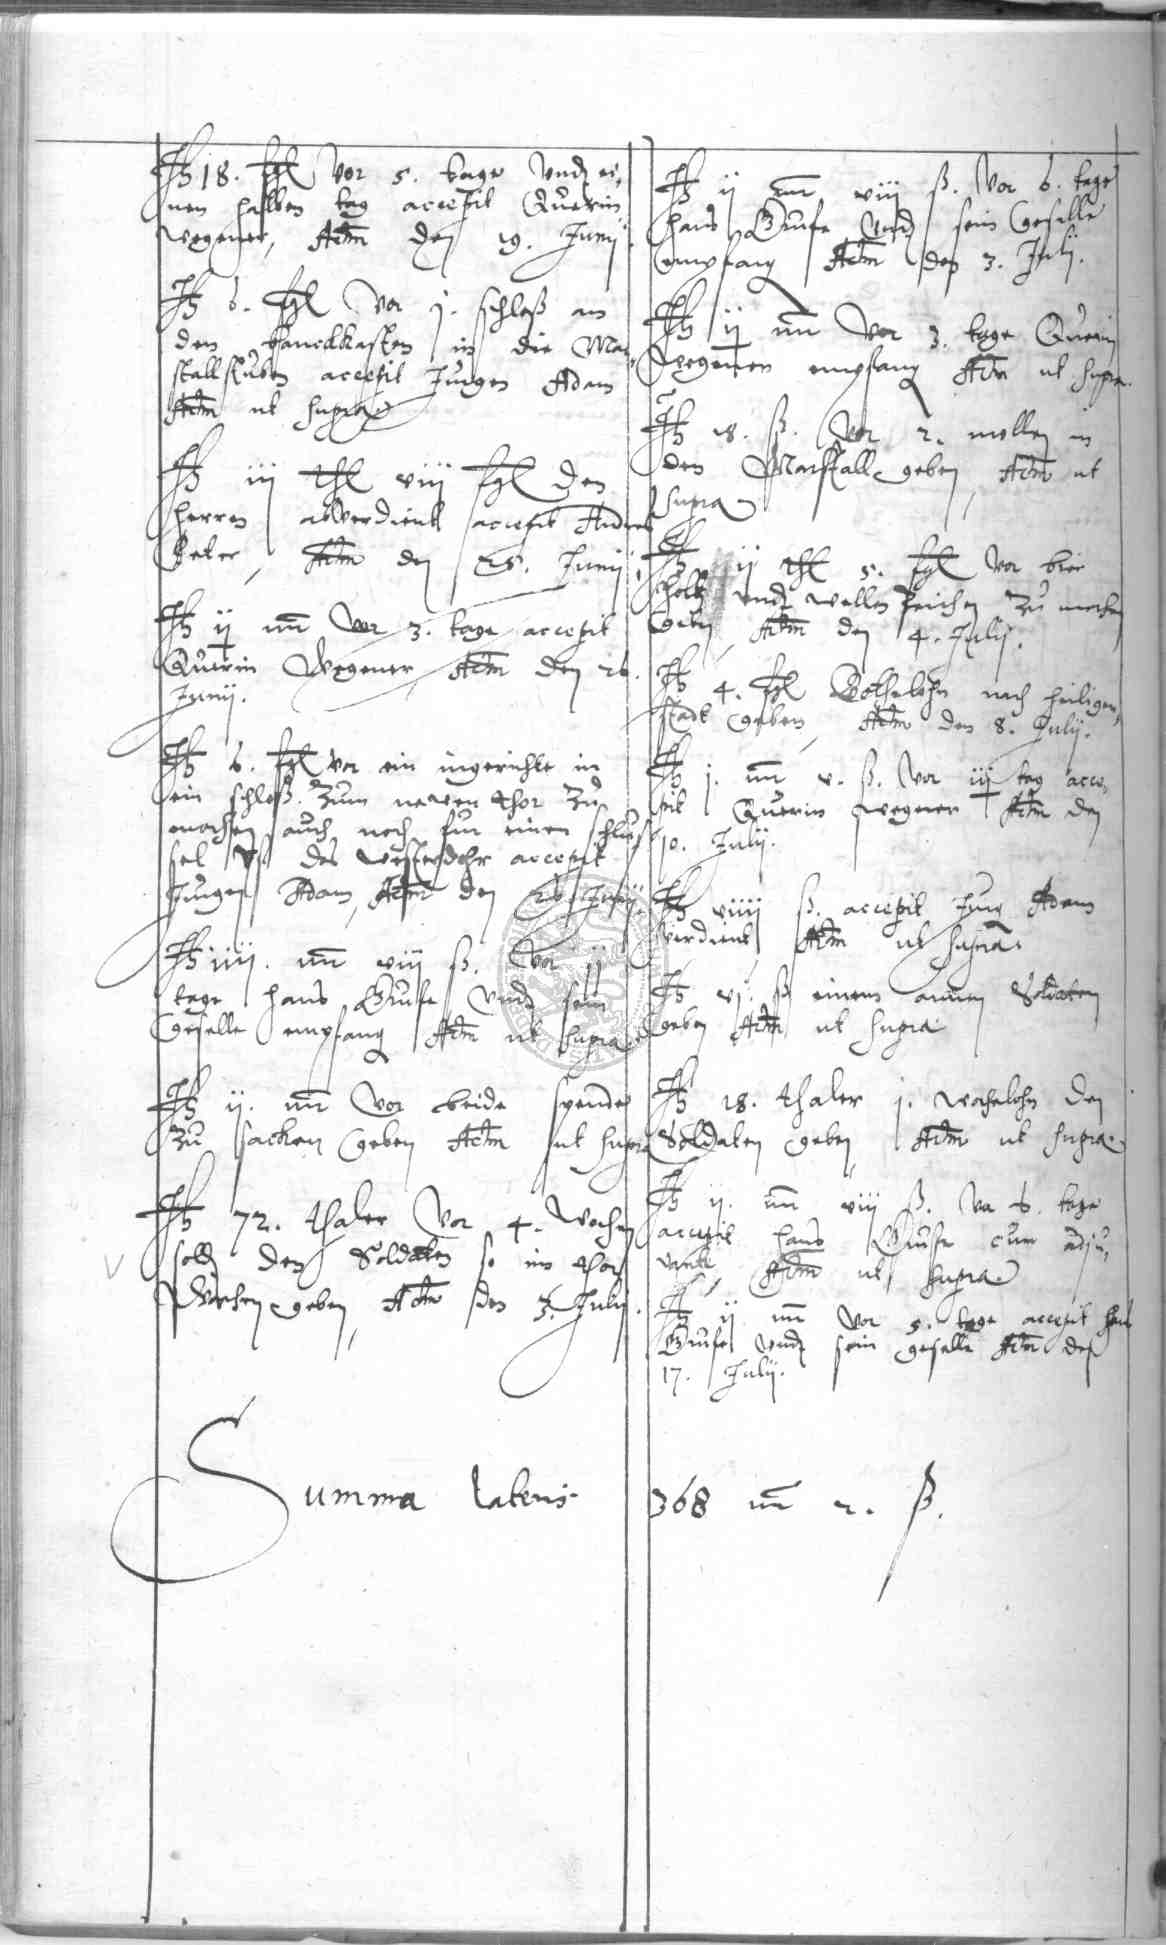 It 18. fgl vor 5. tage undt ei,
nen halben tag accepit Querin
Wegener, Actm den 19. Junij.
It 6. fgl vor j. schloß an
den banckkasten in die Mar,
stallstuben accepit Jurgen Adam
Actm ut supra
It iij thl viij fgl den
herren abverdient accepit Andres
Peter, Actm den 25. Junij
It ij mr vor 3. tage accepit
Querin Wegener, Actm den 26.
Junij.
It 6. fgl vor ein ingerichte in
ein schloß zum newen thor zu
machen auch noch fur einen schluß
sel des accepit
Jurgen Adam, Actm den 26. Junij
It iiij. mr viij ß. vor ij
tage hans Grufe undt sein
geselle empfang Actm ut supra
It ij. mr vor beide spende
zu sacken geben Actm ut supra
It 72. thaler vor 4. wochen
soldt den Soldaten so ins thor
wachen geben, Actm den 3. Julij.
It ij mr viij ß. vor 6. tage
hans Grufe undt sein geselle
empfang Actm den 3. Julij.
It ij mr vor 3. tage Querin
Wegener empfang Actm ut supra.
It 18. ß. vor 2. mollen in
den Marstall geben, Actm ut
supra
It ij thl 5. fgl vor bier
holtz undt wellen zeichen zu machen
geben, Actm den 4. Julij.
It 4. fgl Bothelohn nach heiligen,
stadt geben, Actm den 8. Julij.
It j. mr v. ß. vor iij tag acce,
pit Querin Wegener Actm den
10. Julij.
It viiij ß. accepit Jurg Adam
verdient Actm ut supra.
It vj. ß einem armen Soldaten
geben Actm ut supra
It 18. thaler j. wochelohn den
Soldaten geben Actm ut supra
It ij. mr viij ß. vor 6. tage
accepit hans Grufe cum adju,
vante, Actm ut supra
It ij mr vor 5. tage accepit hans
Grufe undt sein geselle Actm den
17. Julij.
Summa lateris 368 mr 2. ß.